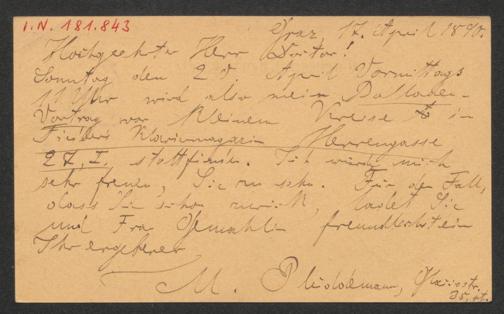 I.N. 181.843
Graz, 17. April 1890.
Hochgeehrter Herr Doctor!
Sonntag den 20. April Vormittags
11 Uhr wird also mein Balladen-
Vortrag vor kleinem Kreise in
Friedels Klaviermagazin Herrengasse
27, I. stattfinden. Sie würde mich
sehr freuen, Sie zu sehn. Für den Fall,
dass Sie schon zurück, ladet Sie
und Fra Gemahlin freundlichst ein
Ihr ergebener
M. Plüddemann,
35, II.